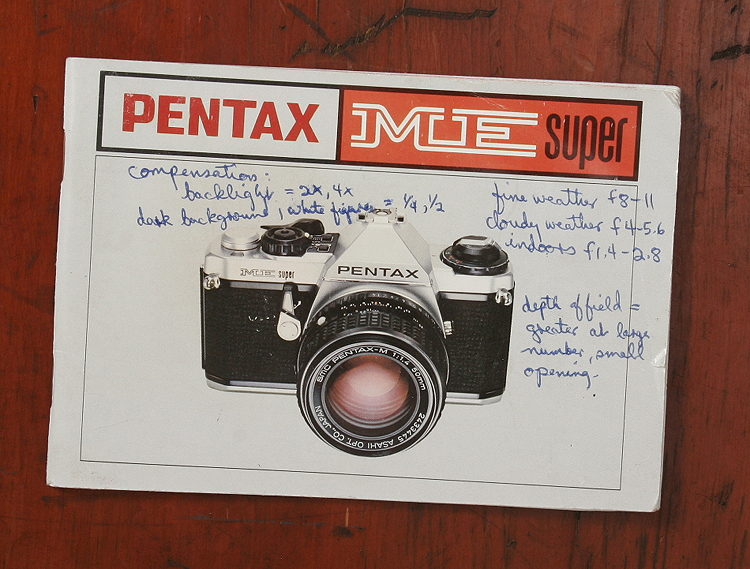 PENTAX ME super
compensation:
backlight = 2x, 4x
dark background, white figure = 1/4, 1/2
fine weather f8-11
cloudy weather f4-5.6
indoors f1.4-2.8
depth of field =
greater at large
number, small
opening.
ME super
PENTAX
smc PENTAX-M 1:1.4 50mm
2433445 ASAHI OPT. CO., JAPAN